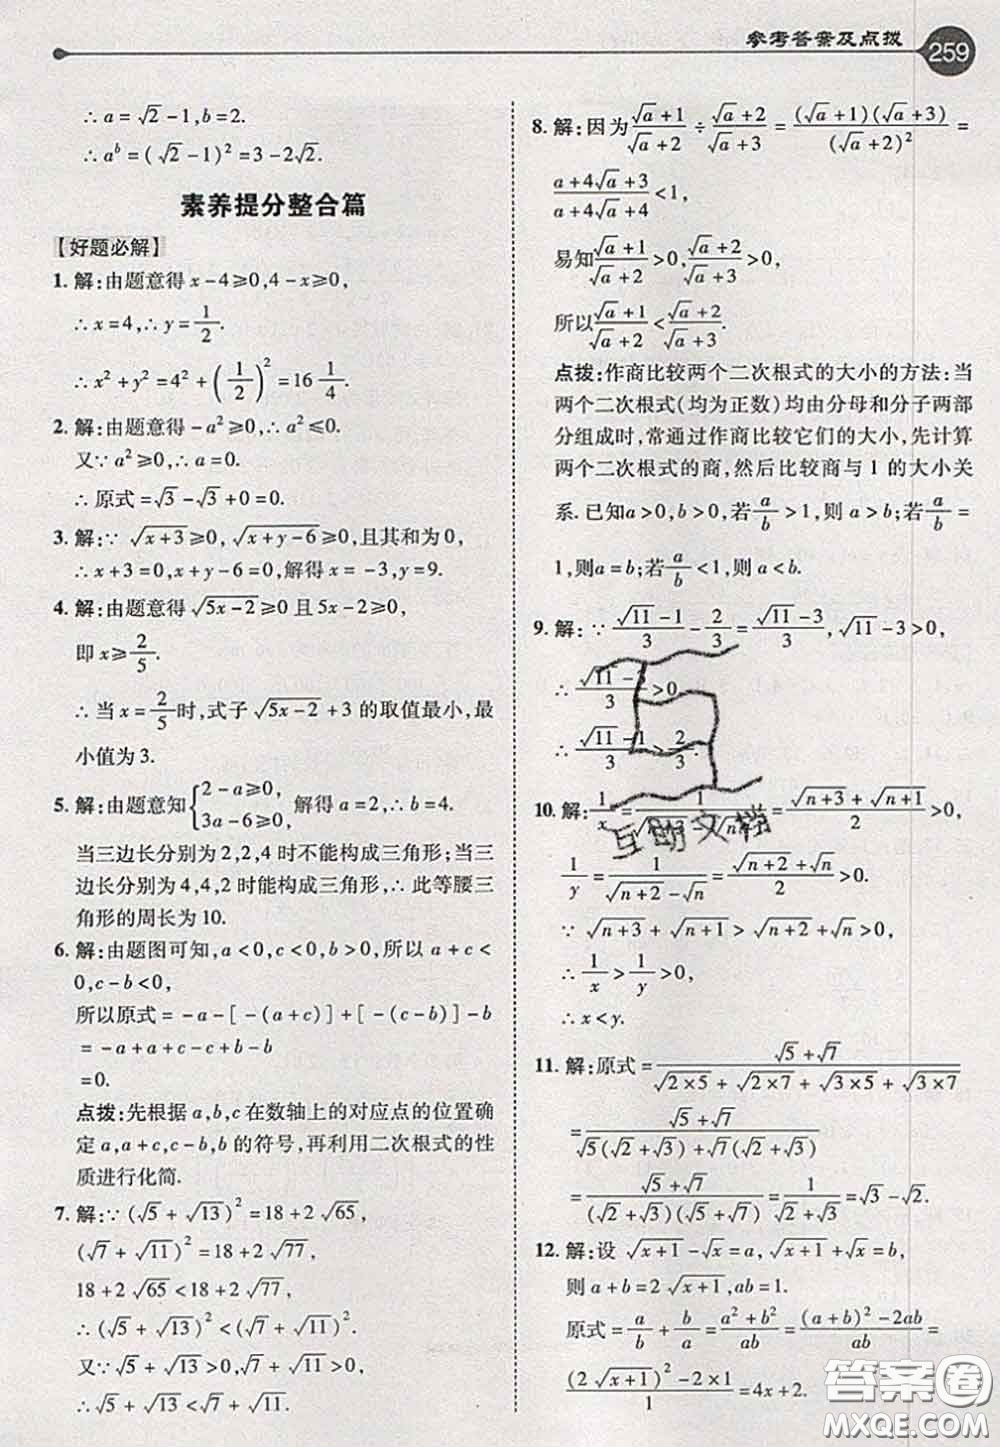 参考答案及点拨 259
∴a=√2-1,b=2.
∴a^b=(√2-1)²=3-2√2.
素养提分整合篇
【好题必解】
1. 解:由题意得x-4≥0,4-x≥0,
∴x=4,∴y=1/2.
∴x²+y²=4²+(1/2)²=16 1/4.
2. 解:由题意得-a²≥0,∴a²≤0.
又∵a²≥0,∴a=0.
∴原式=√3-√3+0=0.
3. 解:∵√(x+3)≥0,√(x+y-6)≥0,且其和为0,
∴x+3=0,x+y-6=0,解得x=-3,y=9.
4. 解:由题意得√(5x-2)≥0且5x-2≥0,
即x≥2/5.
∴当x=2/5时,式子√(5x-2)+3的取值最小,最
小值为3.
5. 解:由题意知{2-a≥0, 3a-6≥0, 解得a=2,∴b=4.
当三边长分别为2,2,4时不能构成三角形;当三
边长分别为4,4,2时能构成三角形,∴此等腰三
角形的周长为10.
6. 解:由题图可知,a<0,c<0,b>0,所以a+c<
0,c-b<0,
所以原式=-a-[-(a+c)]+[-(c-b)]-b
=-a+a+c-c+b-b
=0.
点拨:先根据a,b,c在数轴上的对应点的位置确
定a,a+c,c-b,b的符号,再利用二次根式的性
质进行化简.
7. 解:∵(√5+√13)²=18+2√65,
(√7+√11)²=18+2√77,
18+2√65<18+2√77,
∴(√5+√13)²<(√7+√11)².
又∵√5+√13>0,√7+√11>0,
∴√5+√13<√7+√11.
8. 解:因为(√a+1)/(√a+2)÷(√a+2)/(√a+3)=(√a+1)(√a+3)/(√a+2)²=
(a+4√a+3)/(a+4√a+4)<1,
易知(√a+1)/(√a+2)>0,(√a+2)/(√a+3)>0,
所以(√a+1)/(√a+2)<(√a+2)/(√a+3).
点拨:作商比较两个二次根式的大小的方法:当
两个二次根式(均为正数)均由分母和分子两部
分组成时,常通过作商比较它们的大小,先计算
两个二次根式的商,然后比较商与1的大小关
系.已知a>0,b>0,若a/b>1,则a>b;若a/b=
1,则a=b;若a/b<1,则a<b.
9. 解:∵(√11-1)/3-2/3=(√11-3)/3,√11-3>0,
∴(√11-3)/3>0.
∴(√11-1)/3>2/3.
10. 解:1/x=1/(√(n+3)-√(n+1))=(√(n+3)+√(n+1))/2>0,
1/y=1/(√(n+2)-√n)=(√(n+2)+√n)/2>0.
∵√(n+3)+√(n+1)>√(n+2)+√n>0,
∴1/x>1/y>0,
∴x<y.
11. 解:原式=(√5+√7)/(√(2×5)+√(2×7)+√(3×5)+√(3×7))
=(√5+√7)/(√5(√2+√3)+√7(√2+√3))
=(√5+√7)/((√2+√3)(√5+√7))=1/(√2+√3)=√3-√2.
12. 解:设√(x+1)-√x=a,√(x+1)+√x=b,
则a+b=2√(x+1),ab=1.
原式=a/b+b/a=(a²+b²)/ab=((a+b)²-2ab)/ab=
((2√(x+1))²-2×1)/1=4x+2.
互明文档
答案圈
MXQE.COM